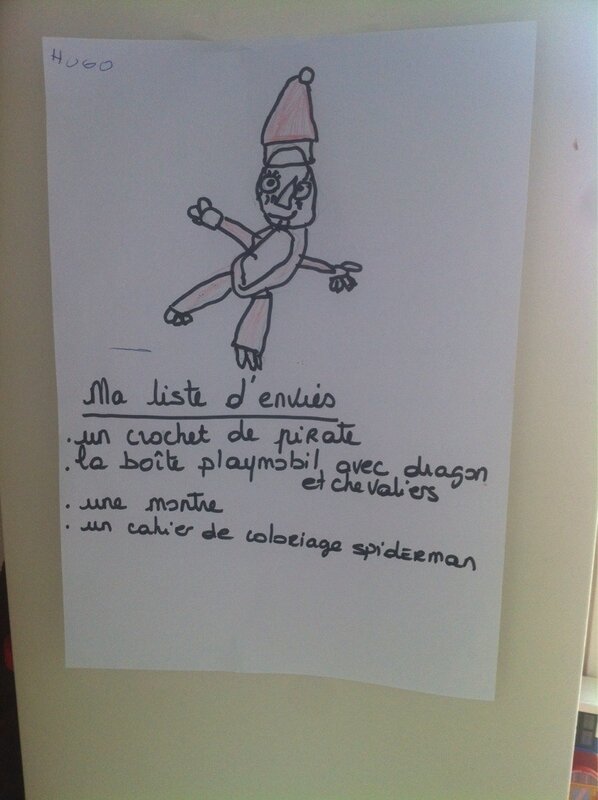 HUGO
Ma liste d'envies
. un crochet de pirate
. la boîte playmobil avec dragon
et chevaliers
. une montre
. un cahier de coloriage spiderman